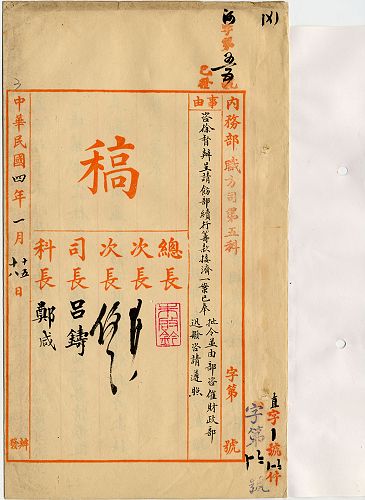 字第
五
已發
內務部職方司第五科
字第
號
事由
咨徐督辦呈請飭部續行籌款接濟一案已奉
批令並由部咨催財政部
迅發咨請遵照
稿
總長
朱啟鈐
次長
次長
司長 呂鑄
科長 鄭咸
中華民國四年一月十五日
十八
辦發
直字1號
件
字第
號